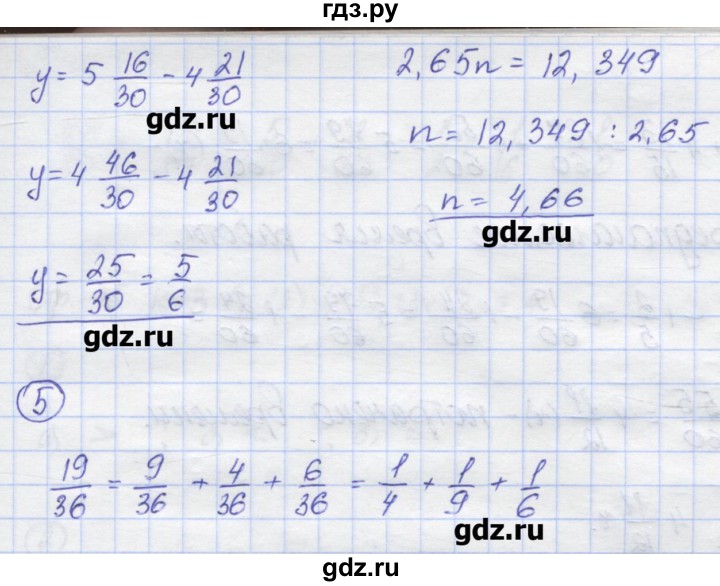 гдз.ру
y = 5 16/30 - 4 21/30
gdz.ru
y = 4 46/30 - 4 21/30
y = 25/30 = 5/6
gdz.ru
2,65n = 12,349
n = 12,349 : 2,65
n = 4,66
gdz.ru
5
19/36 = 9/36 + 4/36 + 6/36 = 1/4 + 1/9 + 1/6
gdz.ru